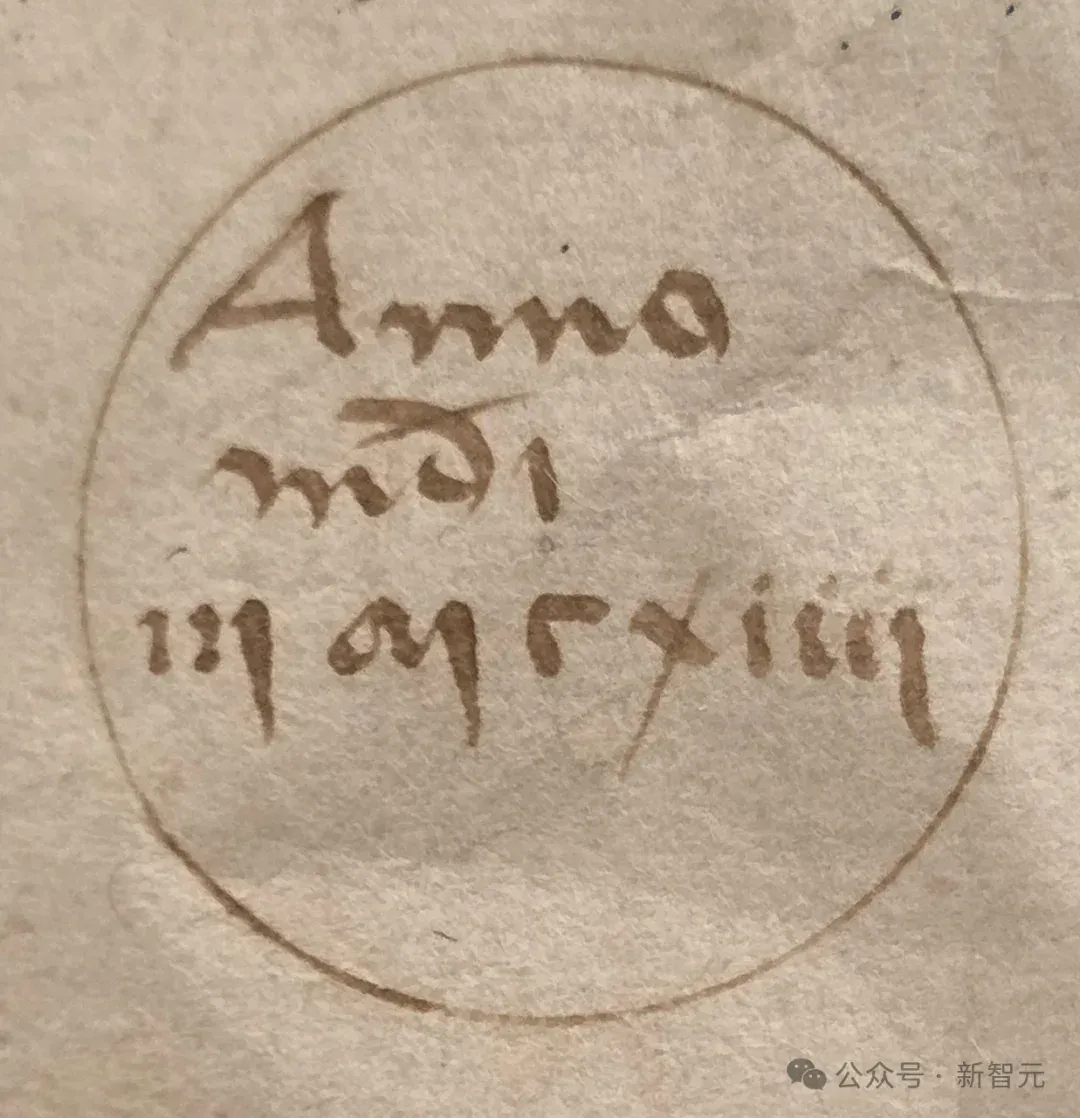 Anno
mdi
iij m c xiiij
公众号 · 新智元